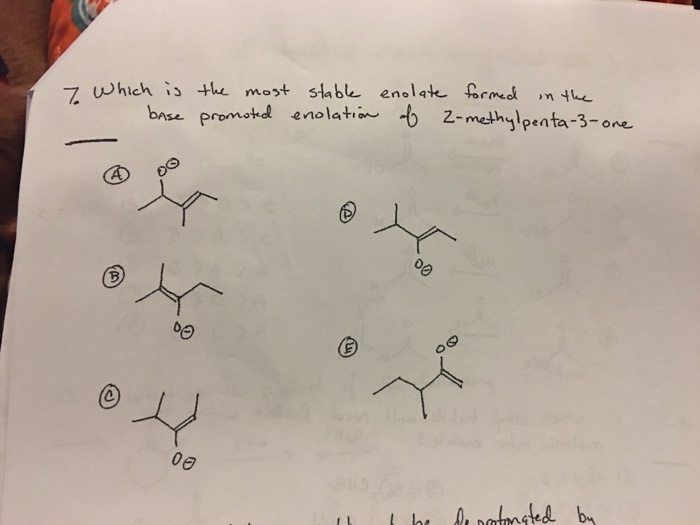 7. Which is the most stable enolate formed in the
base promoted enolation of 2-methylpenta-3-one
A
O⊖
B
O⊖
C
O⊖
D
O⊖
E
O⊖
be deprotonated by